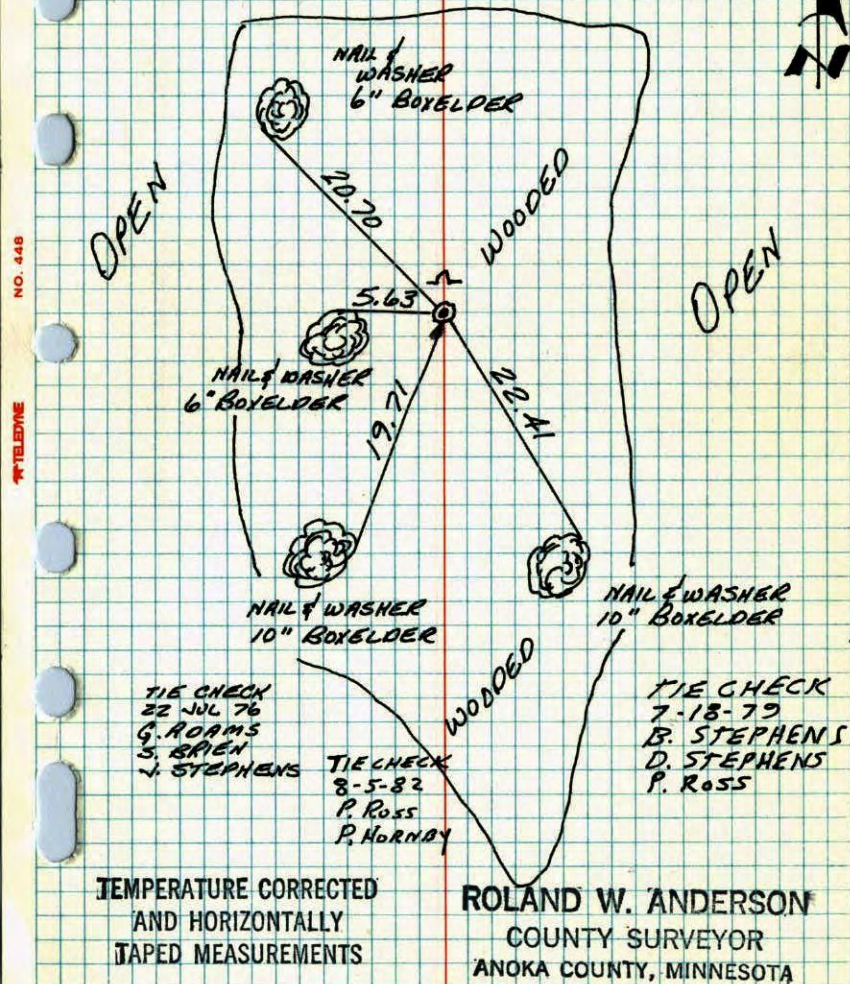 NAIL &
WASHER
6" BOXELDER
OPEN
20.70
WOODED
OPEN
5.63
NAIL & WASHER
6" BOXELDER
19.71
22.41
NAIL & WASHER
10" BOXELDER
NAIL & WASHER
10" BOXELDER
WOODED
TIE CHECK
22 JUL 76
G. ADAMS
S. BRIEN
J. STEPHENS
TIE CHECK
8-5-82
P. ROSS
P. HORNBY
TIE CHECK
7-18-79
B. STEPHENS
D. STEPHENS
P. ROSS
TEMPERATURE CORRECTED
AND HORIZONTALLY
TAPED MEASUREMENTS
ROLAND W. ANDERSON
COUNTY SURVEYOR
ANOKA COUNTY, MINNESOTA
NO. 448
TELEDYNE